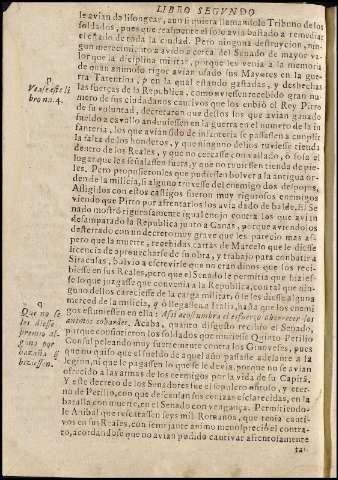 LIBRO SEGVNDO
le avian de lisongear, aun si quiera llamandole Tribuno de los
soldados, pues que realmente el solo avia bastado a remediar
el daño de toda la ciudad. Pero ninguna destruycion, nin-
gun merecimiento avido cerca del Senado de mayor va-
lor que la disciplina militar, porque les venia a la memoria
de quan animoso rigor avian usado sus Mayores en la gue-
rra Tarentina, p en la qual estando gastadas, y deshechas
las fuerças de la Republica, como uviessen recebido gran nu-
mero de sus ciudadanos cautivos que los enbiò el Rey Pirro
de su voluntad, decretaron que dellos los que avian ganado
sueldo a cavallo anduviessen en la guerra en el numero de la in
fanteria, los que avian sido de infanteria se passassen a cumplir
la falta de los honderos, y que ninguno dellos tuviesse tienda
dentro de los Reales, y que no cercasse con vallado, ò fosa el
lugar que les señalassen fuera, y que no tuviessen tienda de pie-
les. Pero propusieronles que pudiessen bolver a la antigua or-
den de la milicia, si alguno truxesse del enemigo dos despojos,
Afligidos con estos castigos fueron muy rigurosos enemigos
viendo que Pirro por afrentarlos los avia dado de balde, El Se
nado mostrò rigurosamente igual enojo contra los que avian
desamparado la Republica junto a Canas, porque aviendolos
desterrado con un decreto muy grave que les parecio mas as-
pero que la muerte, recebidas cartas de Marcelo que le diesse
licencia de aprovecharse de su obra, y trabajo para conbatir a
Siracusas, bolviò a escrevirle que no eran dinos que los reci-
biesse en sus Reales, pero que el Senado le permitia que hizies-
se lo que juzgasse que convenia a la Republica, con tal que nin-
guno dellos careciesse de la carga militar, ò se les diesse alguna
merced de la milicia, q ò si llegassen a Italia, hasta que los enemi-
gos estuviessen en ella: Assi acostumbra el esfuerço aborrecer los
animos cobardes. Acaba, quanto disgusto recibiò el Senado,
porque consintieron los soldados que muriesse Quinto Petilio
Consul peleando muy fuertemente contra los Ginoveses, pues
que no quiso que el sueldo de aquel año passasse adelante a la
legion, ni que le pagassen lo que se le devia, porque no se avian
ofrecido a las armas de los enemigos por la vida de su Capitã.
Y este decreto de los Senadores fue el sepulcro ilustre, y eter-
no de Petilio, con que descansan sus cenizas esclarecidas, en la
batalla con muerte, en el Senado con vengança. Permitiendo-
le Anibal que rescatassen seys mil Romanos, que tenia cauti-
vos en sus Reales, con semejante animo menospreciò el contra-
to, acordandose que no avian podido cautivar afrentosamente
p
Vease este li
bro nu. 4.
q
Que no se
les diesse
premio, al-
guno por
batalla q
hiziessen.